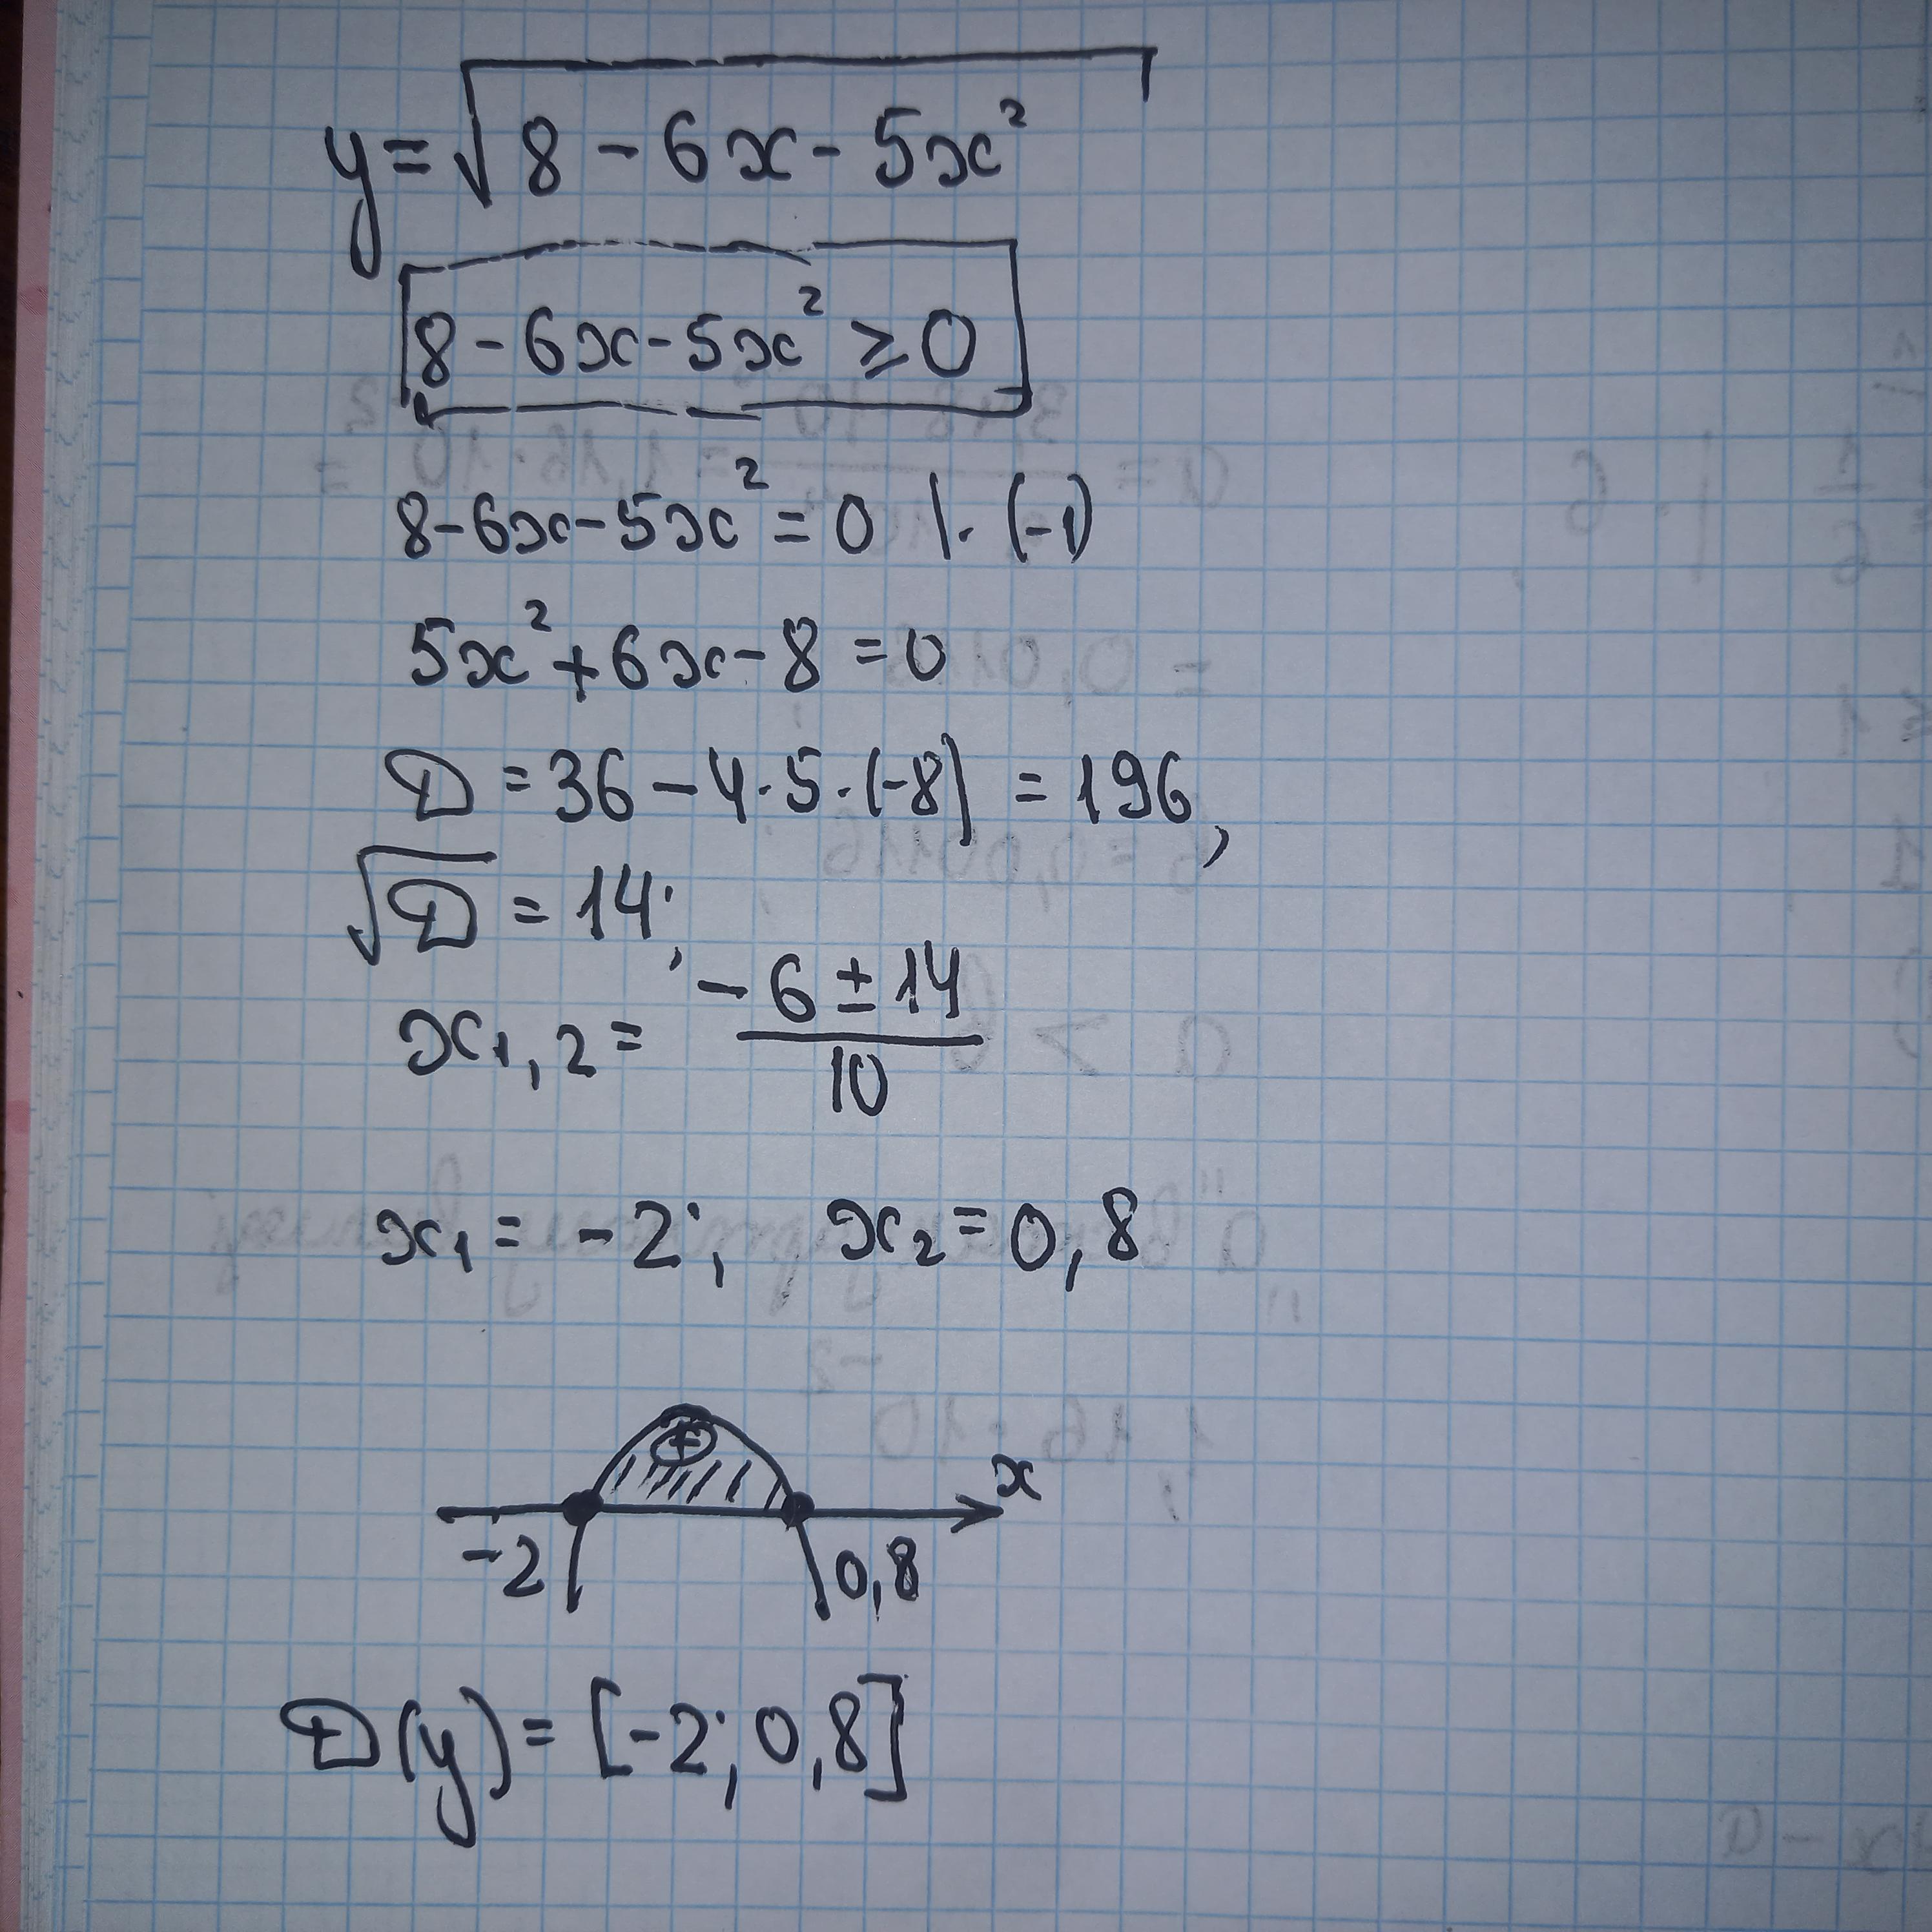 y = √(8 - 6x - 5x²)
8 - 6x - 5x² ≥ 0
8 - 6x - 5x² = 0 | · (-1)
5x² + 6x - 8 = 0
D = 36 - 4 · 5 · (-8) = 196,
√D = 14;
x₁,₂ = (-6 ± 14)/10
x₁ = -2; x₂ = 0,8
+
x
-2 0,8
D(y) = [-2; 0,8]